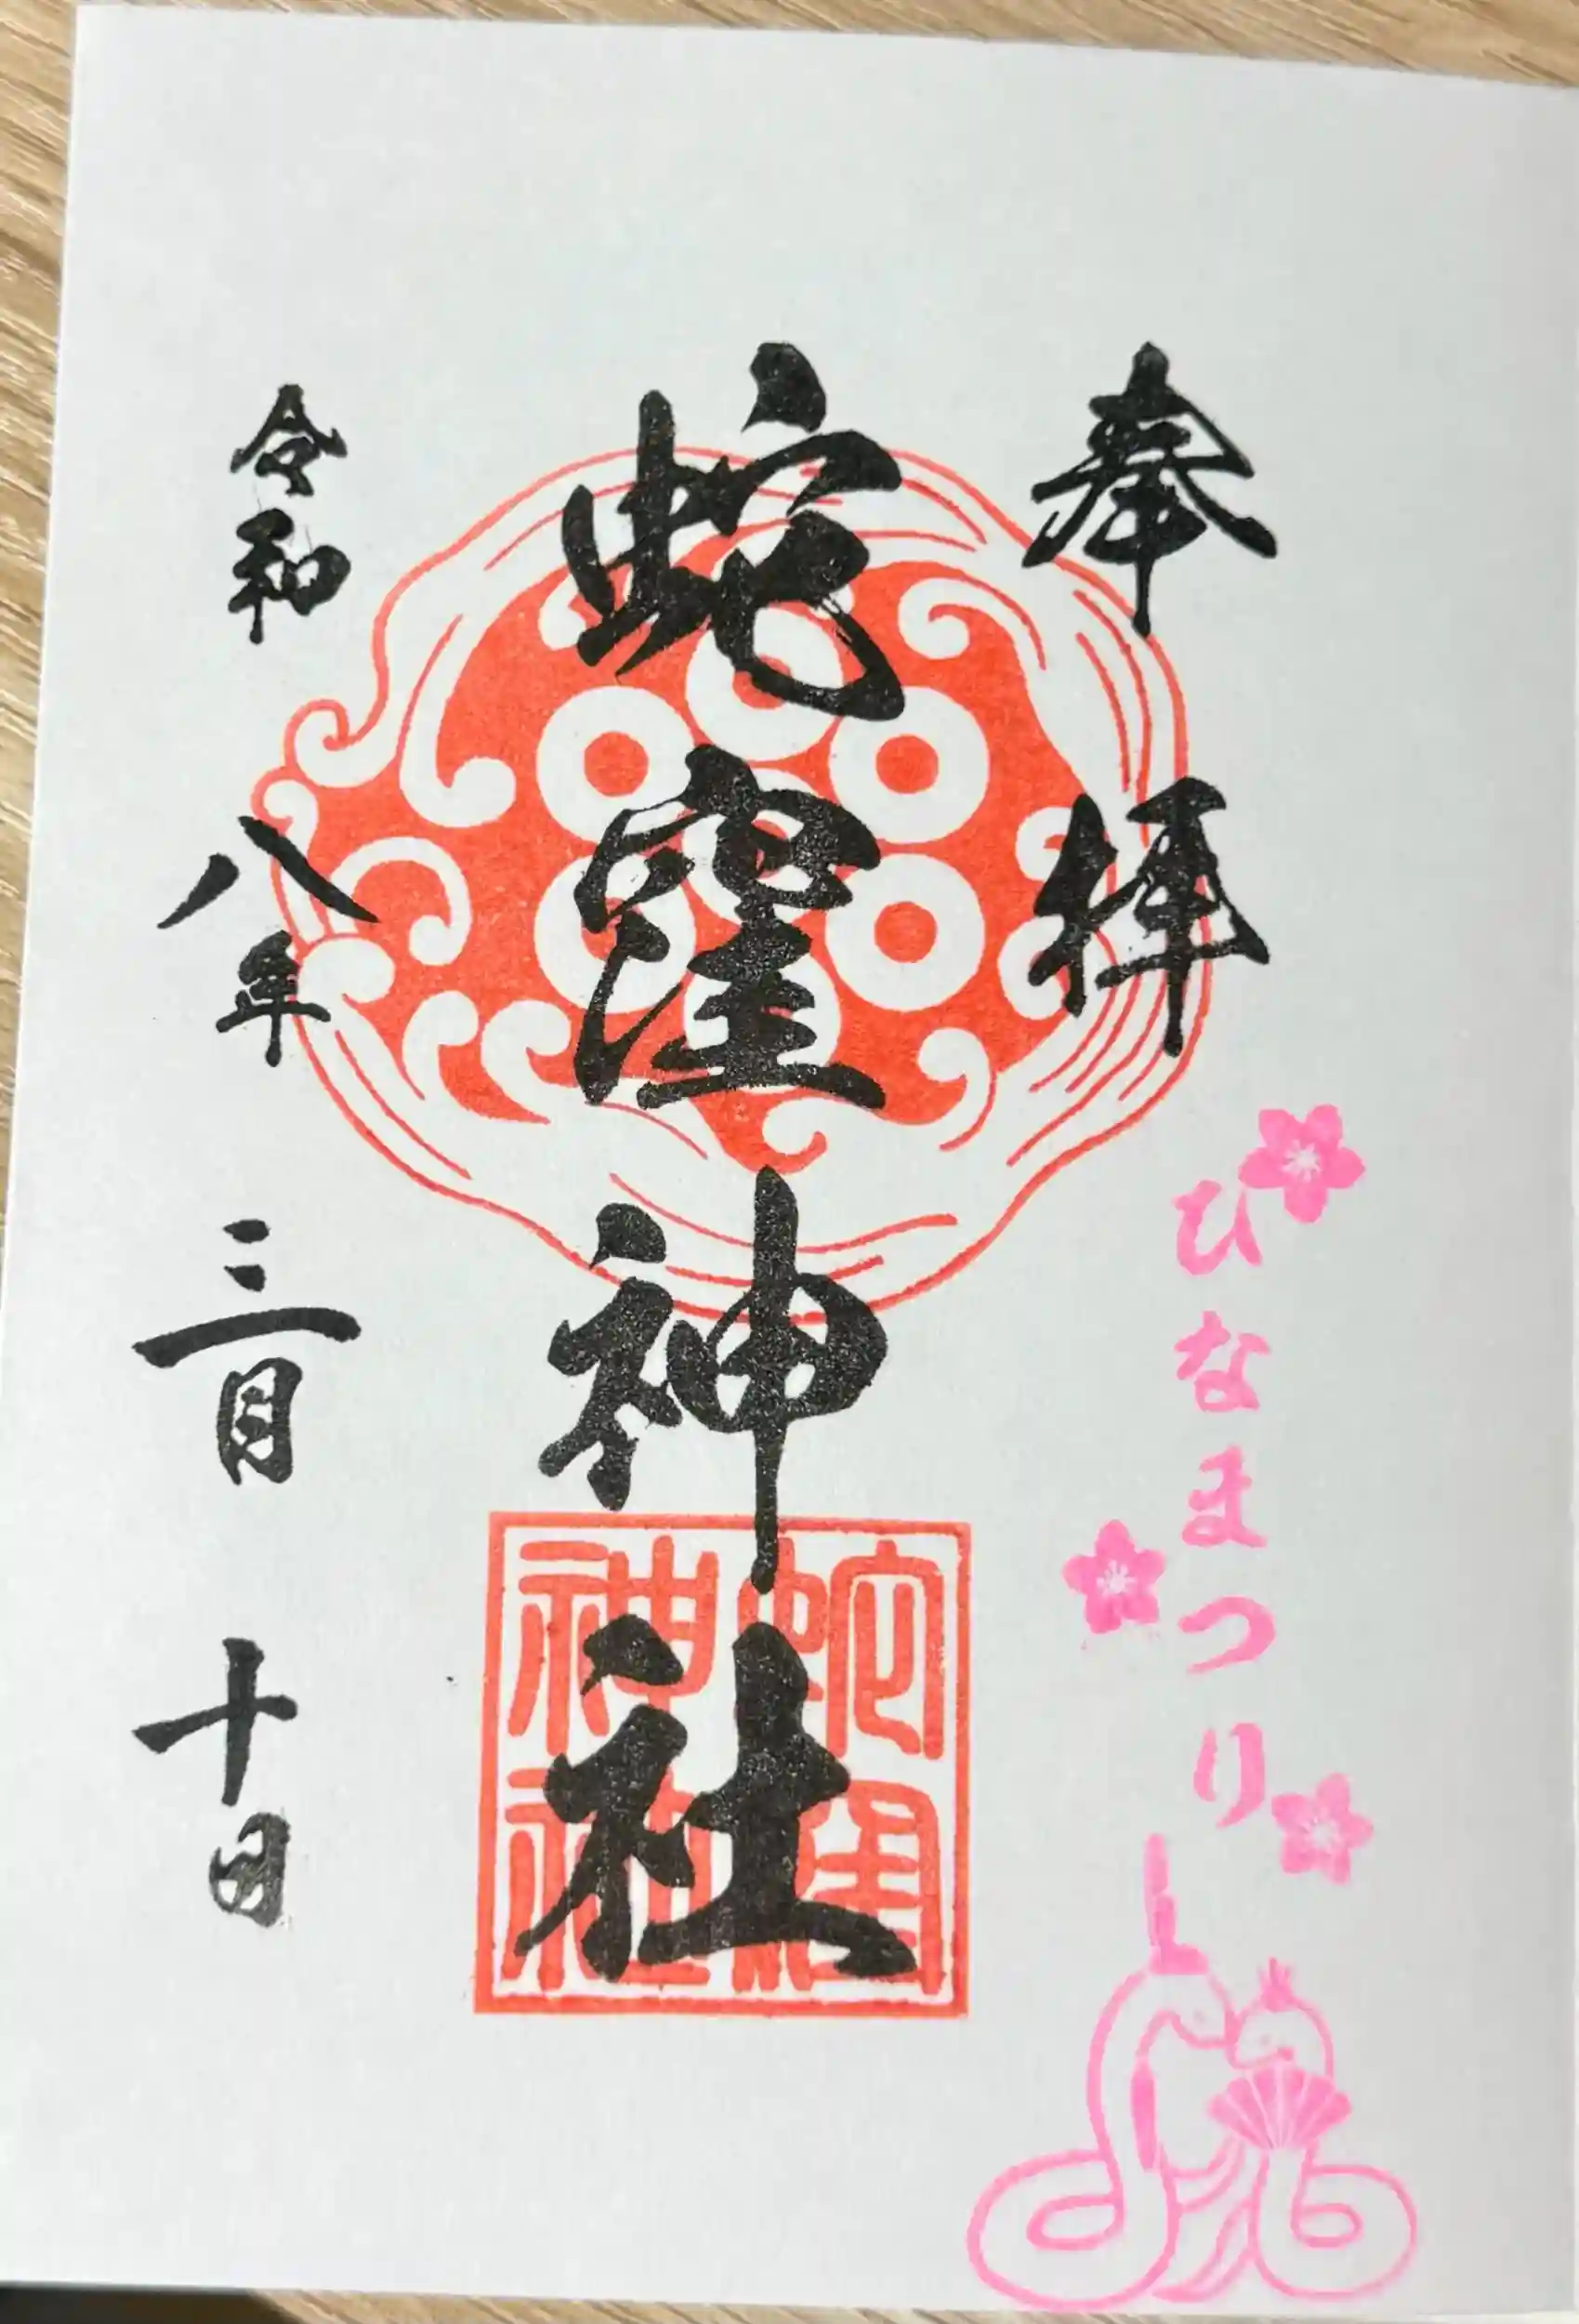 奉拝
ひなまつり
蛇窪神社
蛇窪神社
令和八年三月十日